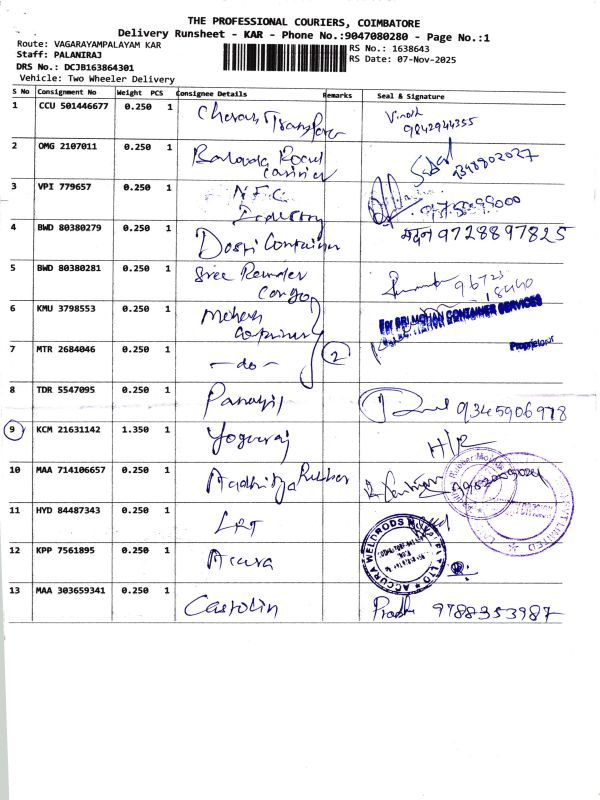 THE PROFESSIONAL COURIERS, COIMBATORE
Delivery Runsheet - KAR - Phone No.:9047080280 - Page No.:1
Route: VAGARAYAMPALAYAM KAR
RS No.: 1638643
Staff: PALANIRAJ
RS Date: 07-Nov-2025
DRS No.: DCJB163864301
Vehicle: Two Wheeler Delivery
S No Consignment No Weight PCS Consignee Details Remarks Seal & Signature
1 CCU 501446677 0.250 1 Transfare Vinoth
9842944355
2 OMG 2107011 0.250 1
Carrier
3 VPI 779657 0.250 1 N.F.C
Industry
4 BWD 80380279 0.250 1 Dosti Container मदन 9728897825
5 BWD 80380281 0.250 1 Sree
Cargo 96723
18440
6 KMU 3798553 0.250 1 Mohan
Container For SRI MOHAN CONTAINER SERVICES
Proprietor
7 MTR 2684046 0.250 1 - do - 2
8 TDR 5547095 0.250 1 9345906978
9 KCM 21631142 1.350 1 Yogaraj H/R
10 MAA 714106657 0.250 1 Aadhitya Rubber
11 HYD 84487343 0.250 1 LRT
12 KPP 7561895 0.250 1 Acura ACCURA WELDRODS KOVAI (P) LTD
13 MAA 303659341 0.250 1 Castolin 9788353987